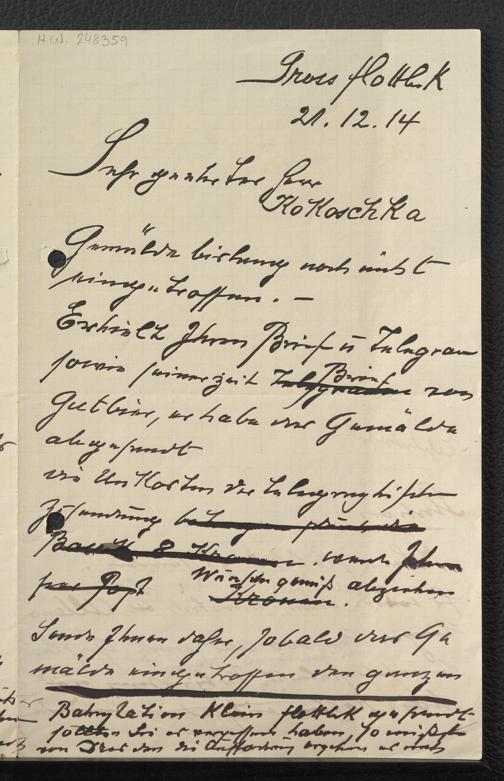 H.I.N. 248359
Gross flottbek
21.12.14
Sehr geehrter Herr
Kokoschka
Gemälde bislang noch nicht
eingetroffen. —
Erhielt Ihren Brief u Telegram
sowie seinerzeit Telegramm Brief von
Gutbier, er habe das Gemälde
abgesandt
die Unkosten der telegraphischen
Zusendung
8 Kronen. werde Ihnen
per Post Wunschgemäß abziehen
Kronen.
Sende Ihnen daher, sobald das Ge
mälde eingetroffen den ganzen
Bahnstation Klein flottbek gesandt
sollten Sie es vergessen haben, so
von